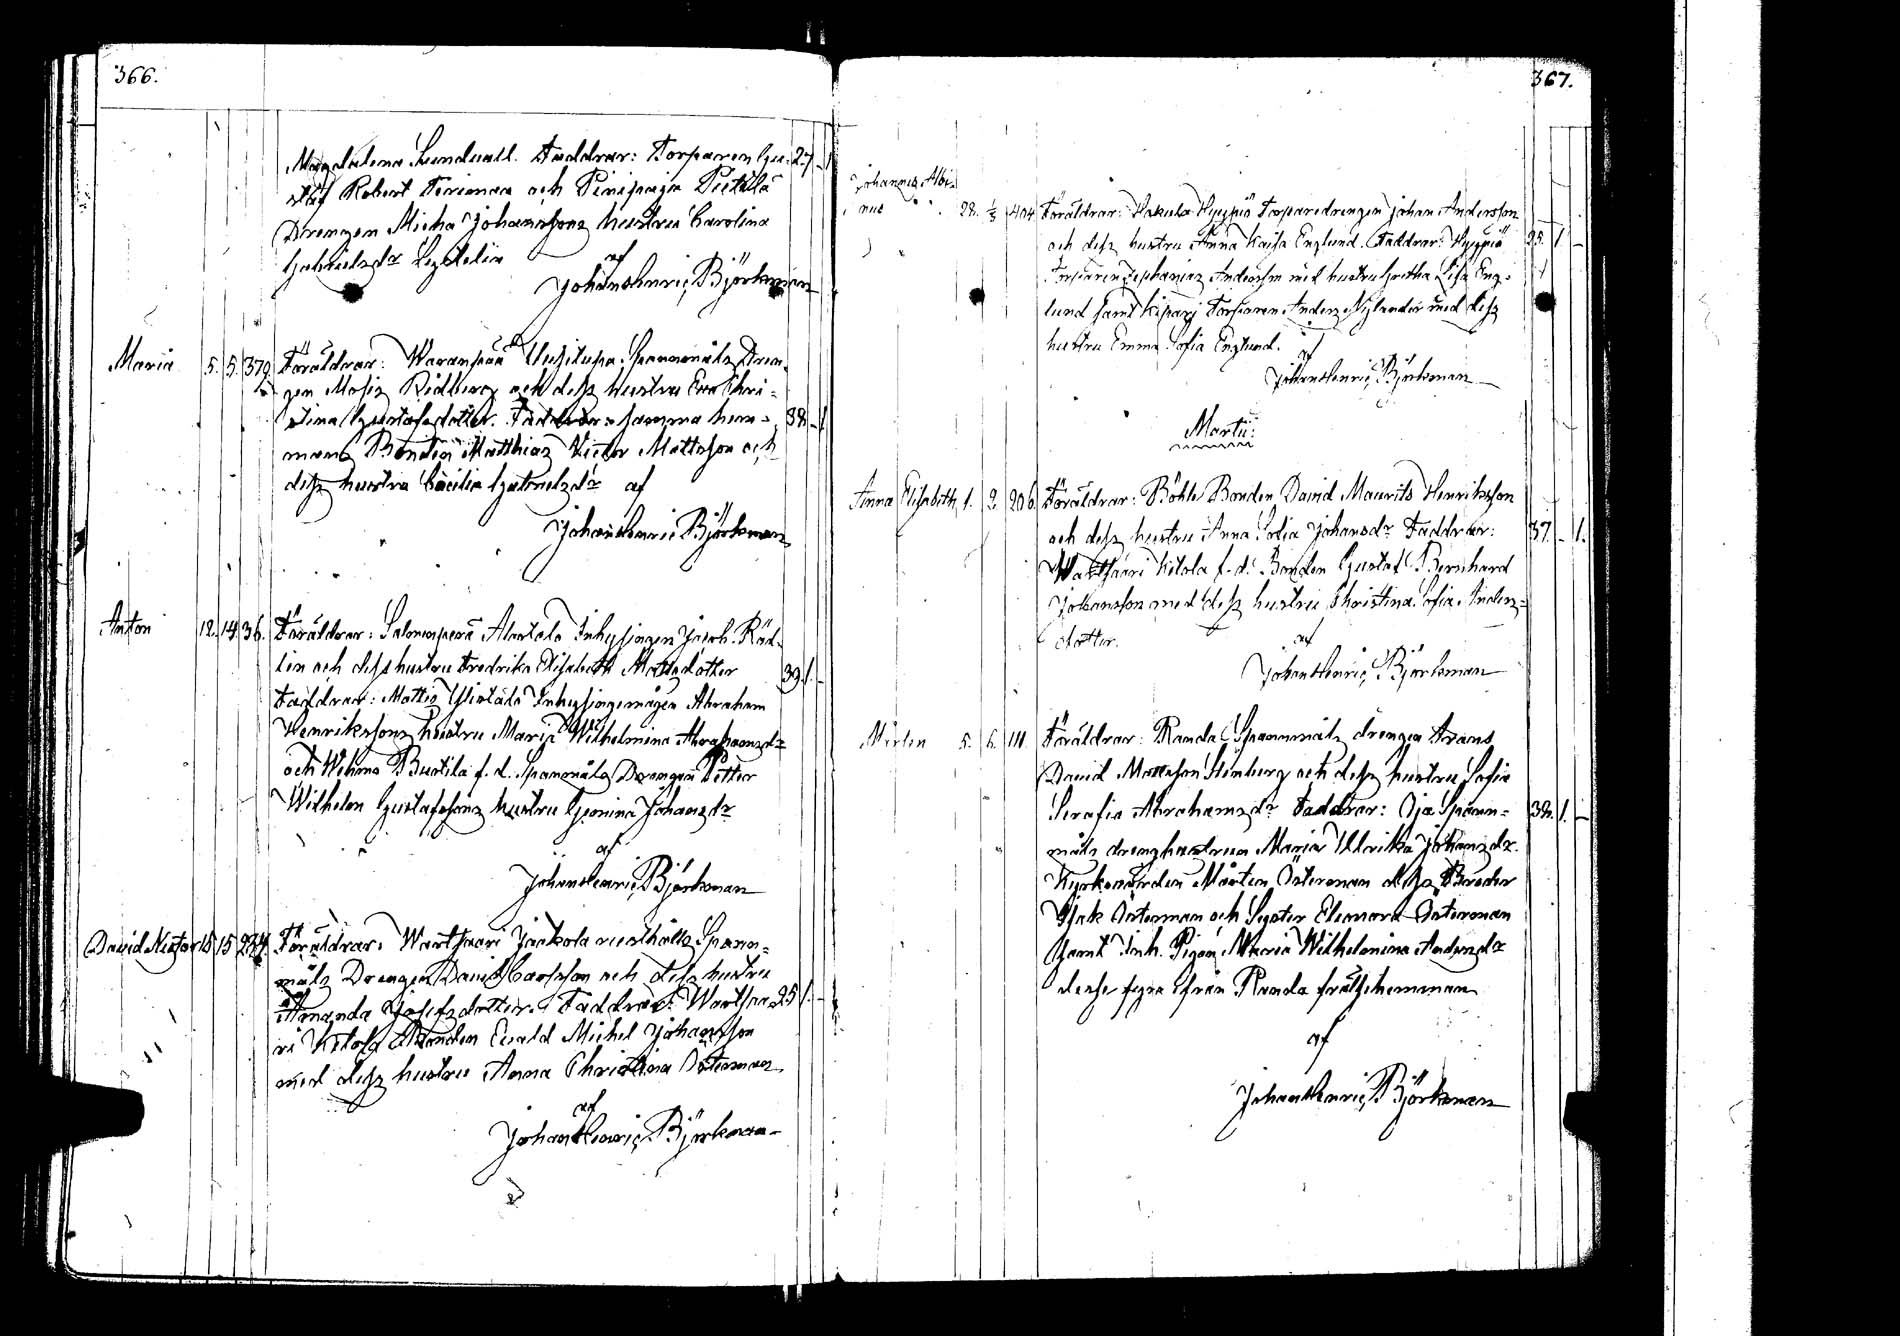 366.
Magdalena Lundvall. Faddrar: Torparen Gu- 27 - 1
staf Robert Terimaa och Pinipajo Pietilä
Drengen Micha Johanssons hustru Carolina
Gabrielsdr Lydelin
af
Johan Henric Björkman
Maria 5. 5. 379. Föräldrar: Waranpää Uusitupa Spannmåls Dren-
gen Moses Ridberg och dess hustru Eva Chri-
stina Gustafsdotter. Faddrar: samma hem- 38 - 1
mans Bonden Matthias Victor Mattsson och
dess hustru Cæcilia Gabrielsdr af
Johan Henric Björkman
Anton 12. 14. 36. Föräldrar: Salmenperä Alastalo Inhysingen Jacob Räd-
lin och dess hustru Fredrika Elisabeth Mattsdotter 39. 1. -
Faddrar: Mattis Ylistalo Inhysingemågen Abraham
Henrikssons hustru Maria Wilhelmina Abrahamsdr
och Wehma Burtila f. d. Spannmåls Drengen Petter
Wilhelm Gustafssons hustru Gemina Johansdr
af
Johan Henric Björkman
David Nestor 15 15 234. Föräldrar: Wartsaari Jackola rusthålls Spann-
måls Drengen David Carlsson och dess hustru
Amanda Josefsdotter. Faddrar: Wartsaa- 25 1. -
ri Kitola Bonden Evald Michel Johansson
med dess hustru Anna Christina Österman
af
Johan Henric Björkman
367.
Johannes Albi-
nus 28. 1/3 404 Föräldrar: Hakula Hyypiö Torparedrengen Johan Andersson
och dess hustru Anna Kaisa Englund. Faddrar: Hyypiö 25. 1 -
Torparen Zephanias Andersson med hustru Gretha Lisa Eng-
lund samt Kiparj Torparen Anders Nylander med dess
hustru Emma Sofia Englund.
af
Johan Henric Björkman
Martii:
Anna Elisabeth 1. 2. 206. Föräldrar: Böhle Bonden David Maurits Henriksson
och dess hustru Anna Sofia Johansdr Faddrar: 37. - 1.
Wartsaari Kitola f. d. Bonden Gustaf Bernhard
Johansson med dess hustru Christina Sofia Anders-
dotter.
af
Johan Henric Björkman
Mårten 5. 6. 111. Föräldrar: Randa Spannmåls drengen Frans
David Mattsson Stenberg och dess hustru Sofia
Serafia Abrahamsdr Faddrar: Oja Spann- 32. 1. -
måls drenghustrun Maria Ullrika Johansdr.
Kyrkovärden Mårten Österman dess Broder
Isak Österman och Syster Eleonora Österman
samt Inh. Pigan Maria Wilhelmina Andersdr
desse fyra ifrån Randa frälsehemman
af
Johan Henric Björkman